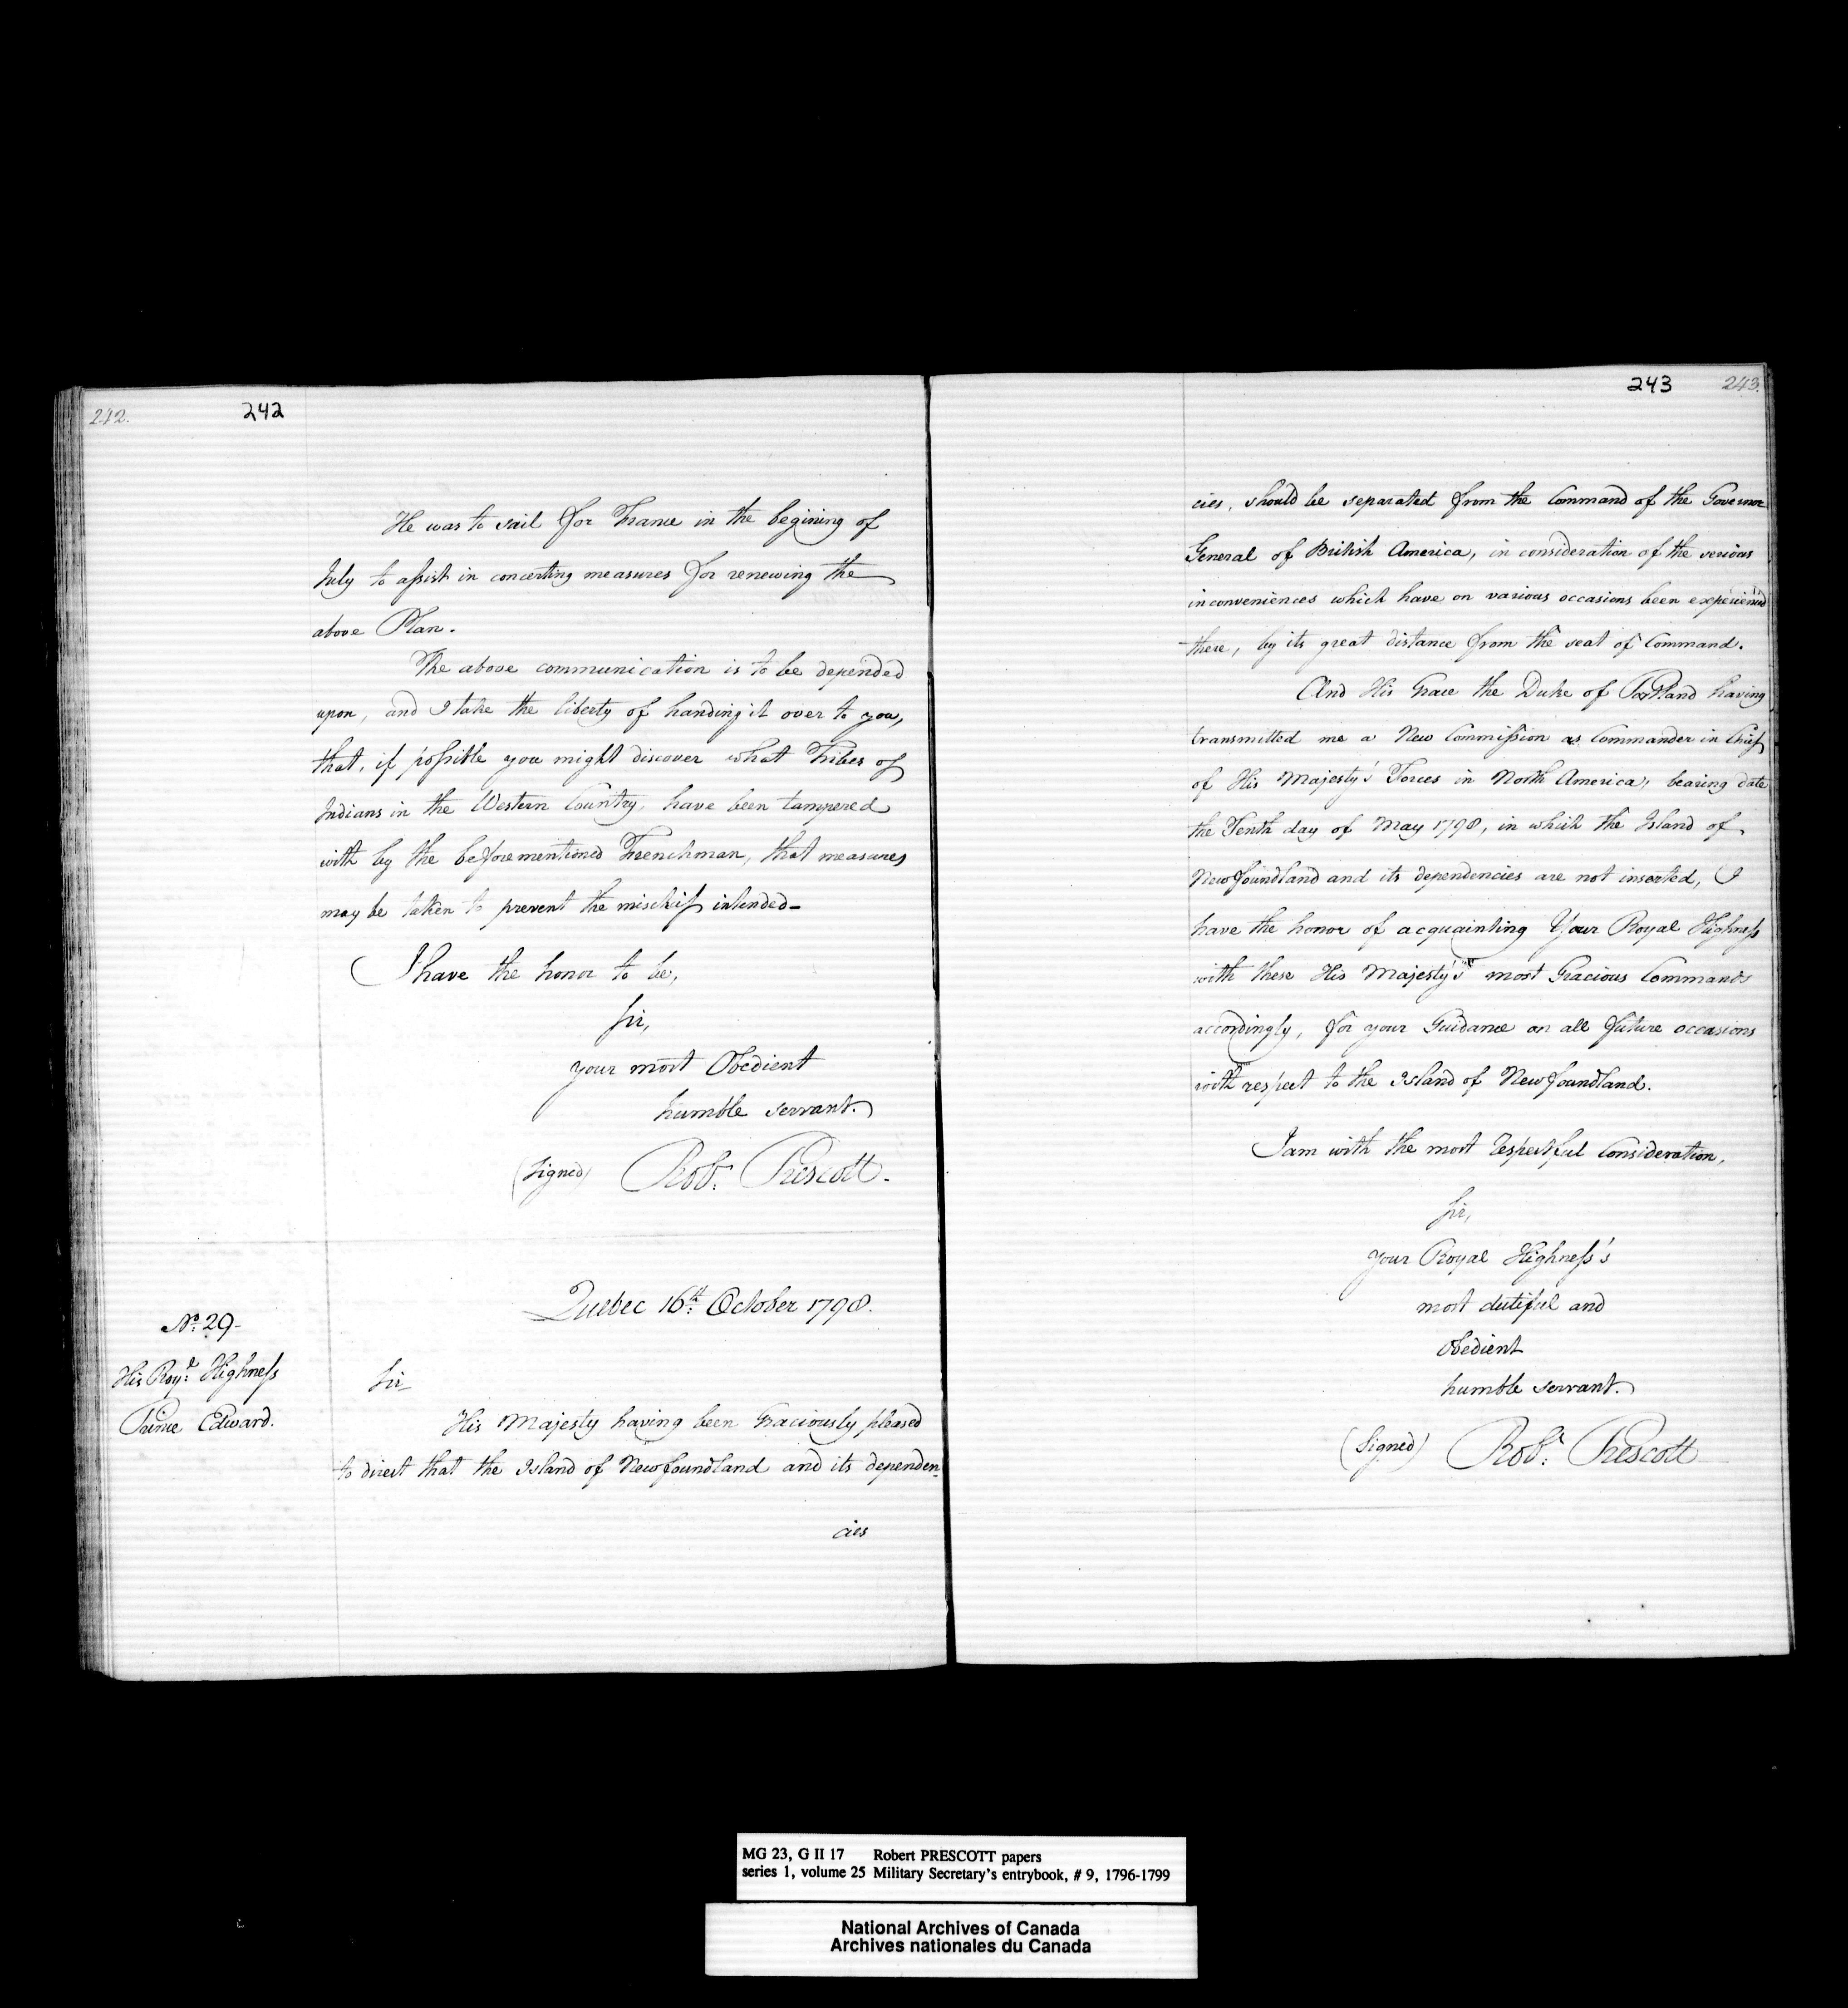 242.
242
He was to sail for France in the begining of
July to assist in concerting measures for renewing the
above Plan.
The above communication is to be depended
upon, and I take the liberty of handing it over to you,
that, if possible you might discover what Tribes of
Indians in the Western Country, have been tampered
with by the beforementioned Frenchman, that measures
may be taken to prevent the mischief intended-
I have the honor to be,
Sir,
your most Obedient
humble servant.
(Signed) Robt. Prescott.
Quebec 16th. October 1798.
No. 29-
His Royl. Highness
Prince Edward.
Sir
His Majesty having been Graciously pleased
to direct that the Island of Newfoundland and its dependen-
cies
243
243.
cies, should be separated from the Command of the Governor
General of British America, in consideration of the serious
inconveniences which have on various occasions been experienced
there, by its great distance from the seat of Command.
And His Grace the Duke of Portland having
transmitted me a New Commission as Commander in Chief
of His Majesty's Forces in North America, bearing date
the Tenth day of May 1798, in which the Island of
Newfoundland and its dependencies are not inserted, I
have the honor of acquainting Your Royal Highness
with these His Majesty's most Gracious Commands
accordingly, for your Guidance on all future occasions
with respect to the Island of Newfoundland.
I am with the most respectful Consideration,
Sir,
your Royal Highness's
most dutiful and
Obedient
humble servant.
(Signed) Robt. Prescott
MG 23, G II 17 Robert PRESCOTT papers
series 1, volume 25 Military Secretary's entrybook, # 9, 1796-1799
National Archives of Canada
Archives nationales du Canada